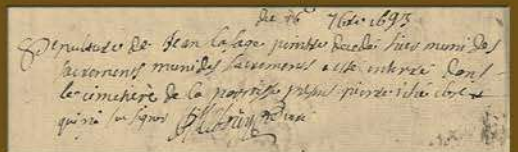 du 16 7bre 1693
Sepulture de Jean Lafage peintre decedé hier muni des
sacremens muni des sacremens a esté enterré dans
le cimetière de la paroisse presens pierre
qui n'a sceu signer